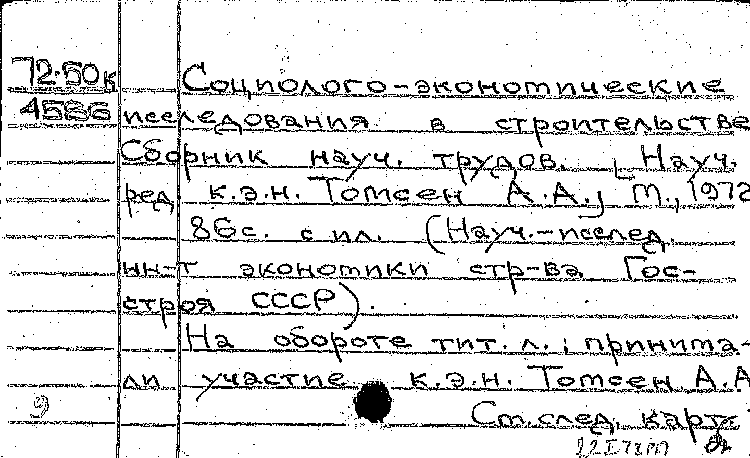 72-50к Социолого-экономические
4586 исследования в строительстве
Сборник науч. трудов. [Науч.
ред. к.э.н. Томсен А.А.] М., 1972
86с. с ил. (Науч.-исслед.
ин-т экономики стр-ва Гос-
строя СССР).
На обороте тит. л.: принима-
ли участие к.э.н. Томсен А.А
9 См. след. карт